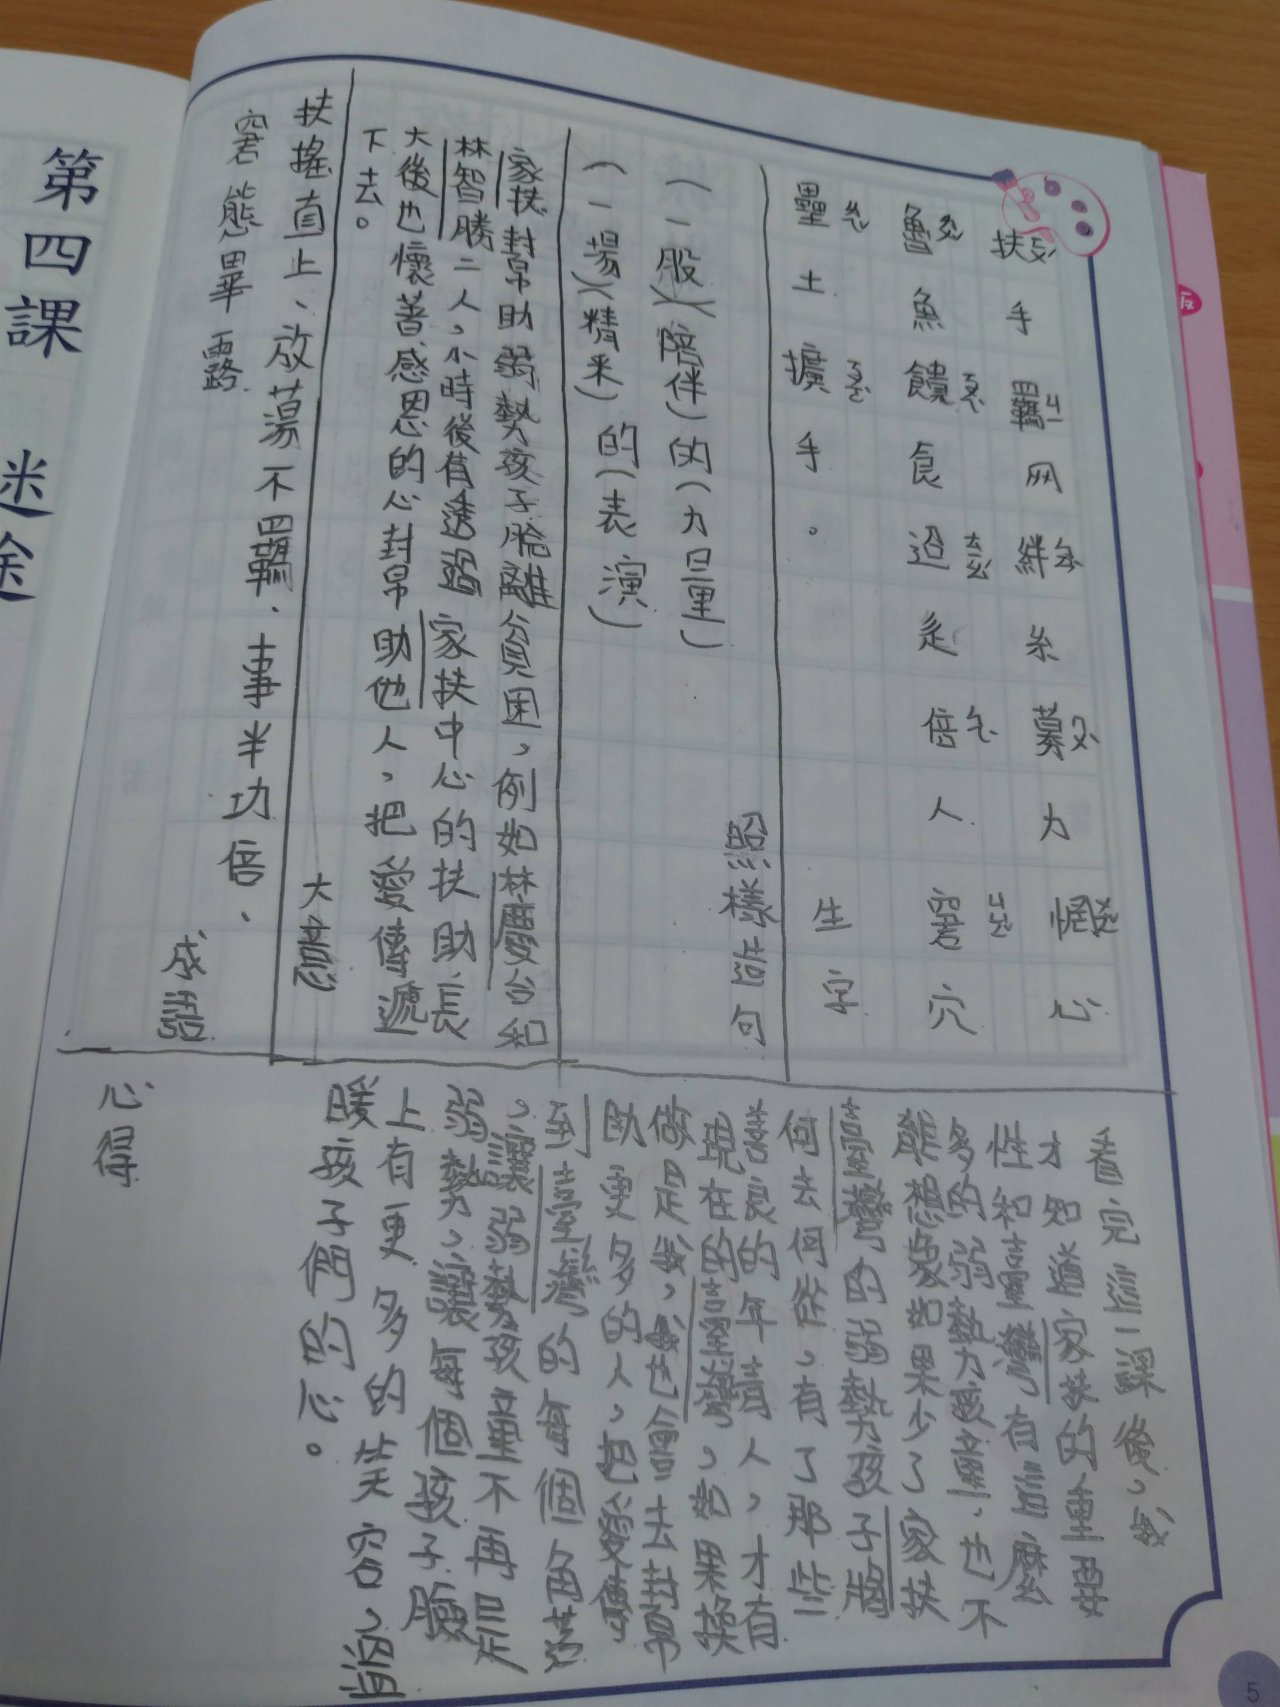 扶ㄈㄨˊ手 羈ㄐㄧ网 絆ㄅㄢˋ糸 募ㄇㄨˋ力 惘ㄨㄤˇ心
魯ㄌㄨˇ魚 饋ㄎㄨㄟˋ食 迢ㄊㄧㄠˊ辵 倍ㄅㄟˋ人 窘ㄐㄩㄥˇ穴
壘ㄌㄟˇ土 擴ㄎㄨㄛˋ手。
生字
照樣造句
(一股)(陪伴)的(力量)
(一場)(精釆)的(表演)
家扶封帛助弱勢孩子脫離貧困,例如林慶台和
林智勝二人,小時後有透過家扶中心的扶助,長
大後也懷著感恩的心封帛助他人,把愛傳遞
下去。
大意
扶搖直上、放蕩不羈、事半功倍、
窘態畢露
成語
看完這一課後,我
才知道家扶的重要
性和臺灣有這麼
多的弱勢孩童,也不
能想像如果少了家扶
臺灣的弱勢孩子將
何去何從,有了那些
善良的年青人,才有
現在的臺灣,如果換
做是我,我也會去封帛
助更多的人,把愛傳
到臺灣的每個角落
,讓弱勢孩童不再是
弱勢,讓每個孩子臉
上有更多的笑容,溫
暖孩子們的心。
心得
第四課 迷途
5